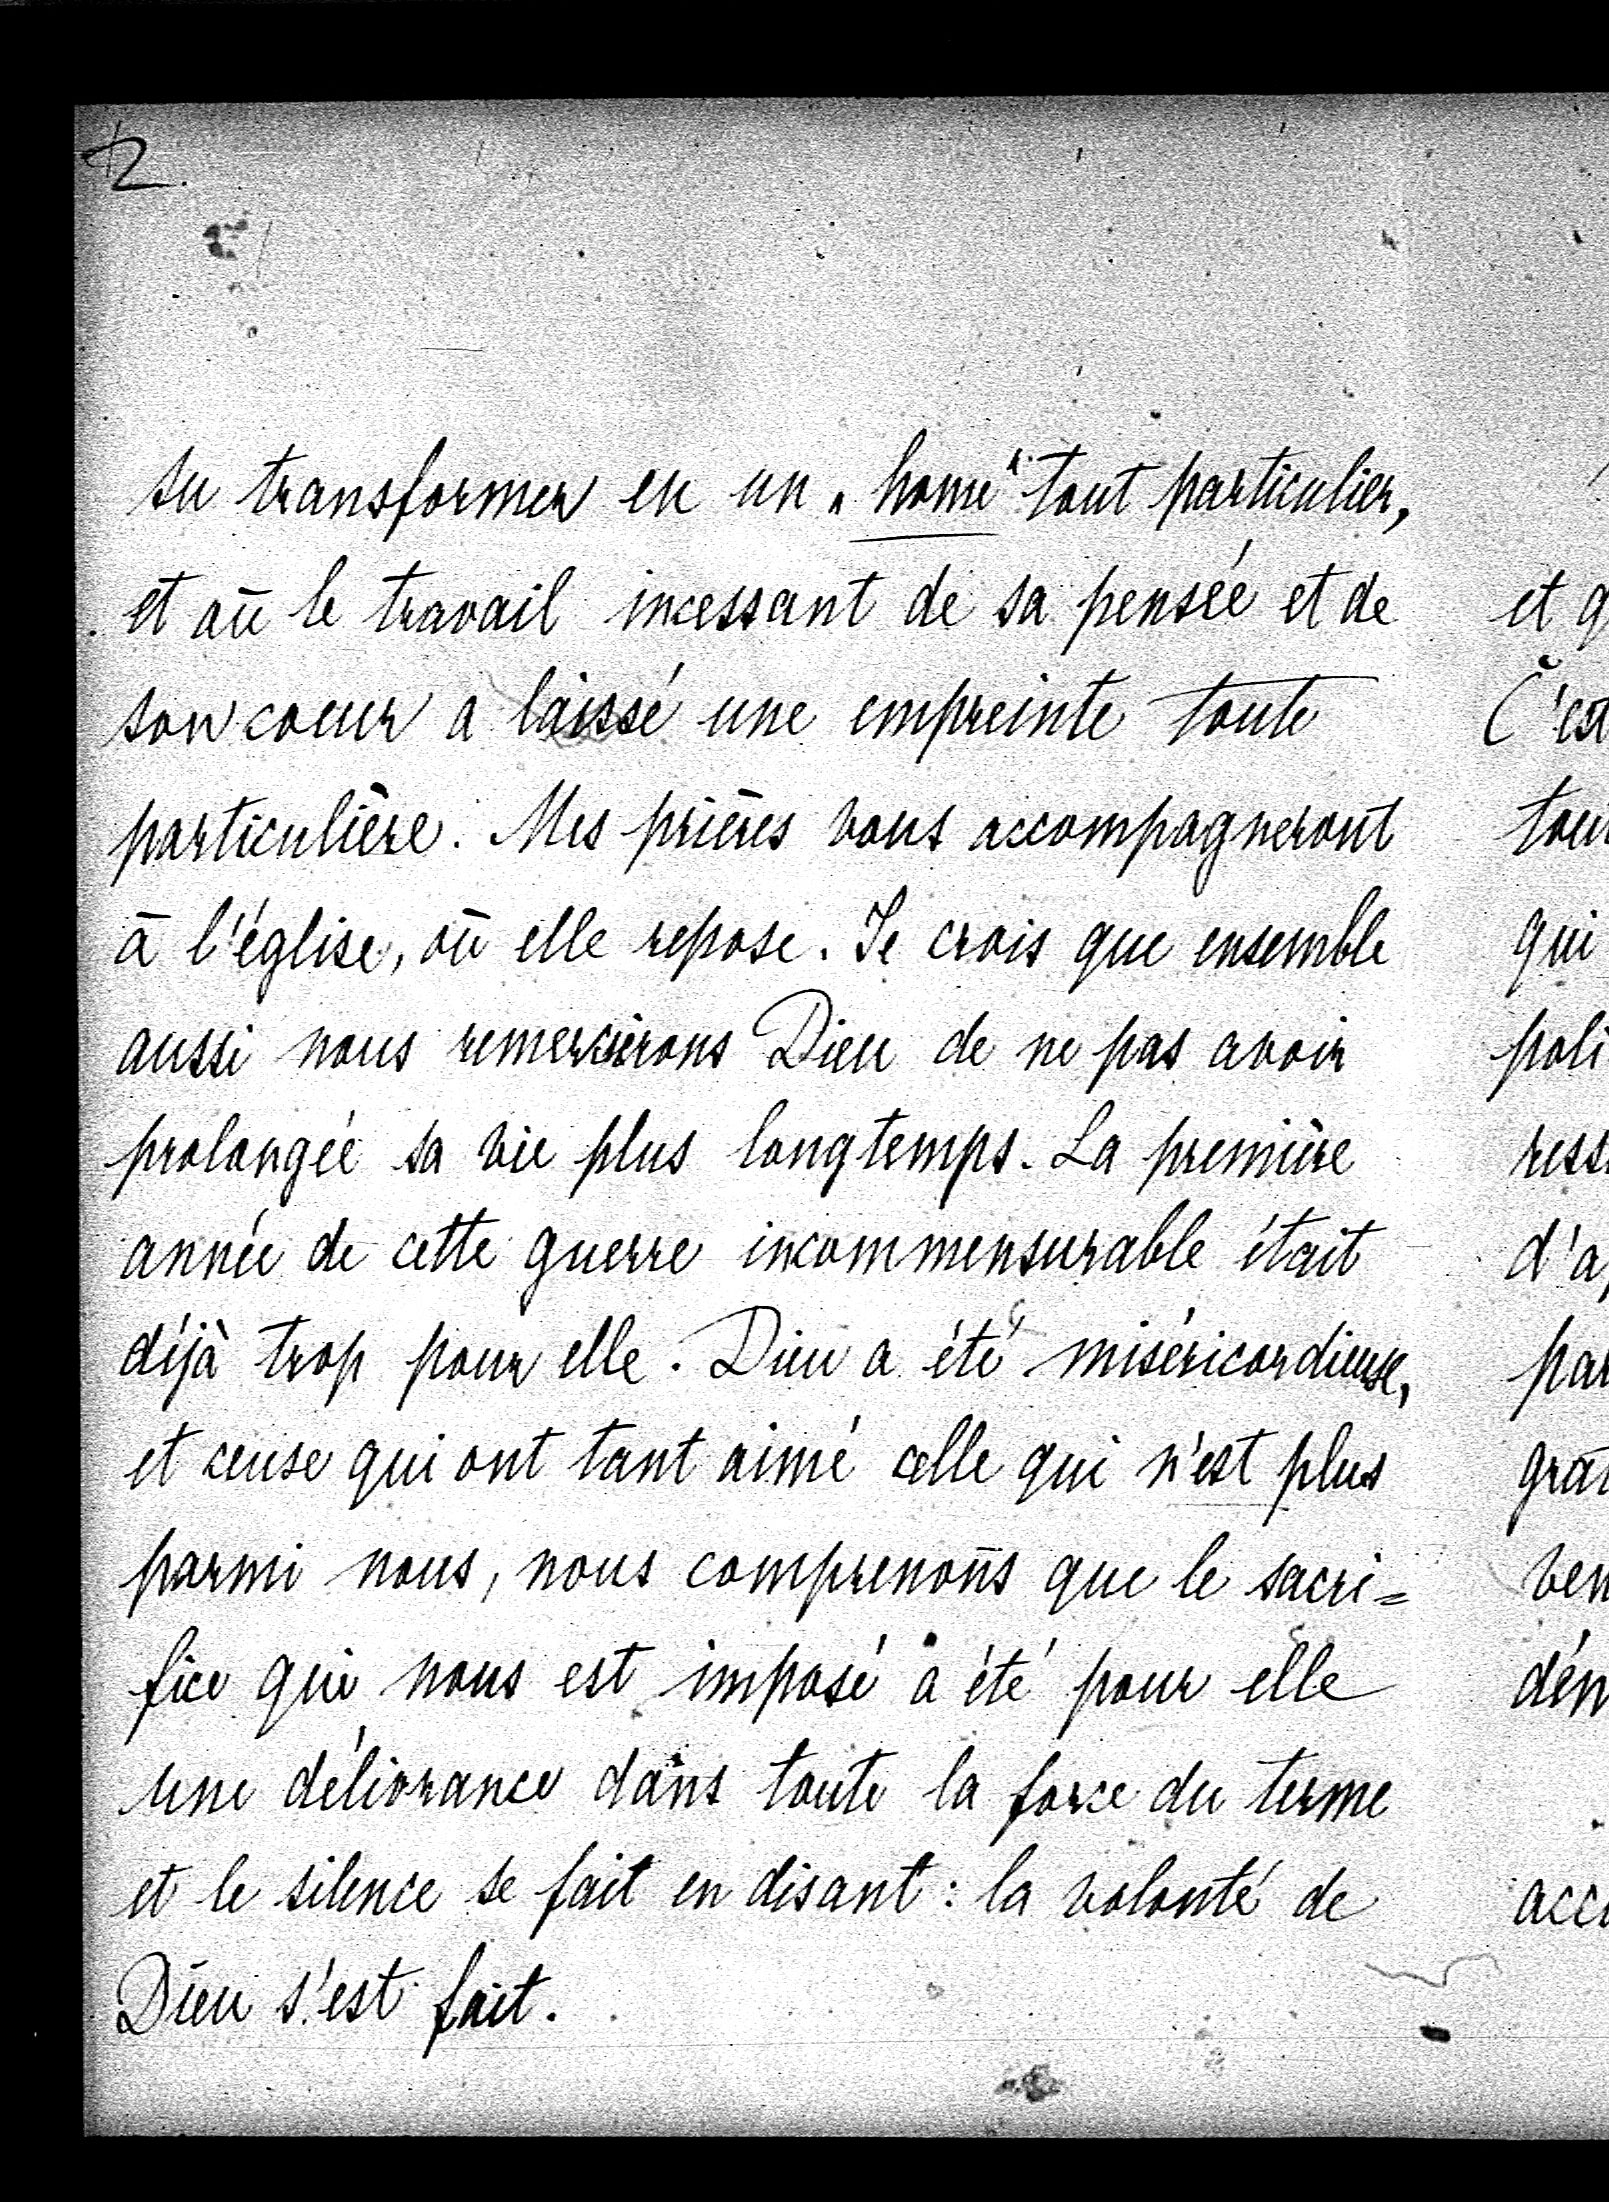 2.
su transformer en un „home“ tout particulier,
et où le travail incessant de sa pensée et de
son coeur a laissé une empreinte toute
particulière. Mes prières vous accompagneront
à l'église, où elle repose. Je crois que ensemble
aussi nous remercirons Dieu de ne pas avoir
prolongée sa vie plus longtemps. La première
année de cette guerre incommensurable était
déjà trop pour elle. Dieu a été miséricordieuse,
et ceuse qui ont tant aimé celle qui n'est plus
parmi nous, nous comprenons que le sacri=
fice qui nous est imposé a été pour elle
une délivrance dans toute la force du terme
et le silence se fait en disant : la volonté de
Dieu s'est fait.
et
C'est
qui